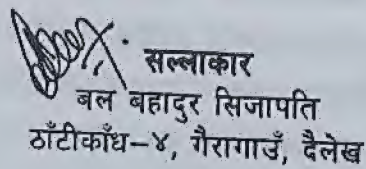 सल्लाकार
बल बहादुर सिजापति
ठाँटीकाँध-४, गैरागाउँ, दैलेख